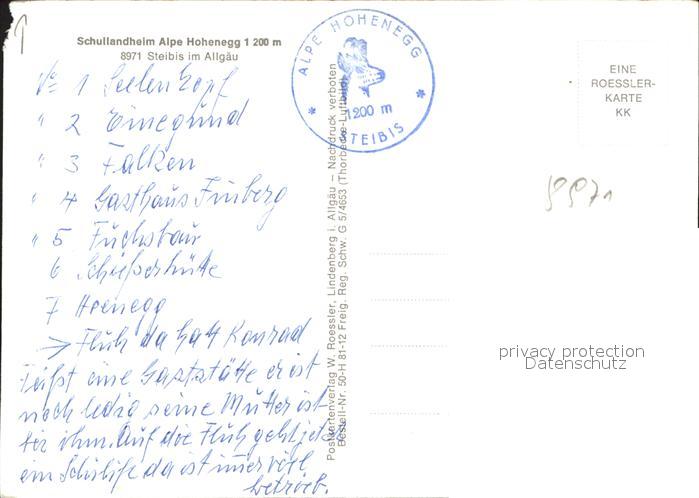 Schullandheim Alpe Hohenegg 1 200 m
8971 Steibis im Allgäu
ALPE HOHENEGG
1200 m
STEIBIS
EINE
ROESSLER-
KARTE
KK
8971
№ 1 Seelen Kopf
" 2 Einegund
" 3 Falken
" 4 Gasthaus Imberg
" 5 Fuchsbau
6 Schießerhütte
7 Hoenegg
→ Fluh da hatt Konrad
Feißt eine Gaststätte er ist
noch ledig seine Mutter ist
bei ihm. Auf die Fluh geht jetzt
ein Schilift da ist imer voll
betrieb.
Postkartenverlag W. Roessler, Lindenberg i. Allgäu – Nachdruck verboten
Bestell-Nr. 50-H 81-12 Freig. Reg. Schw. G 5/4653 (Thorbecke-Luftbild)
privacy protection
Datenschutz